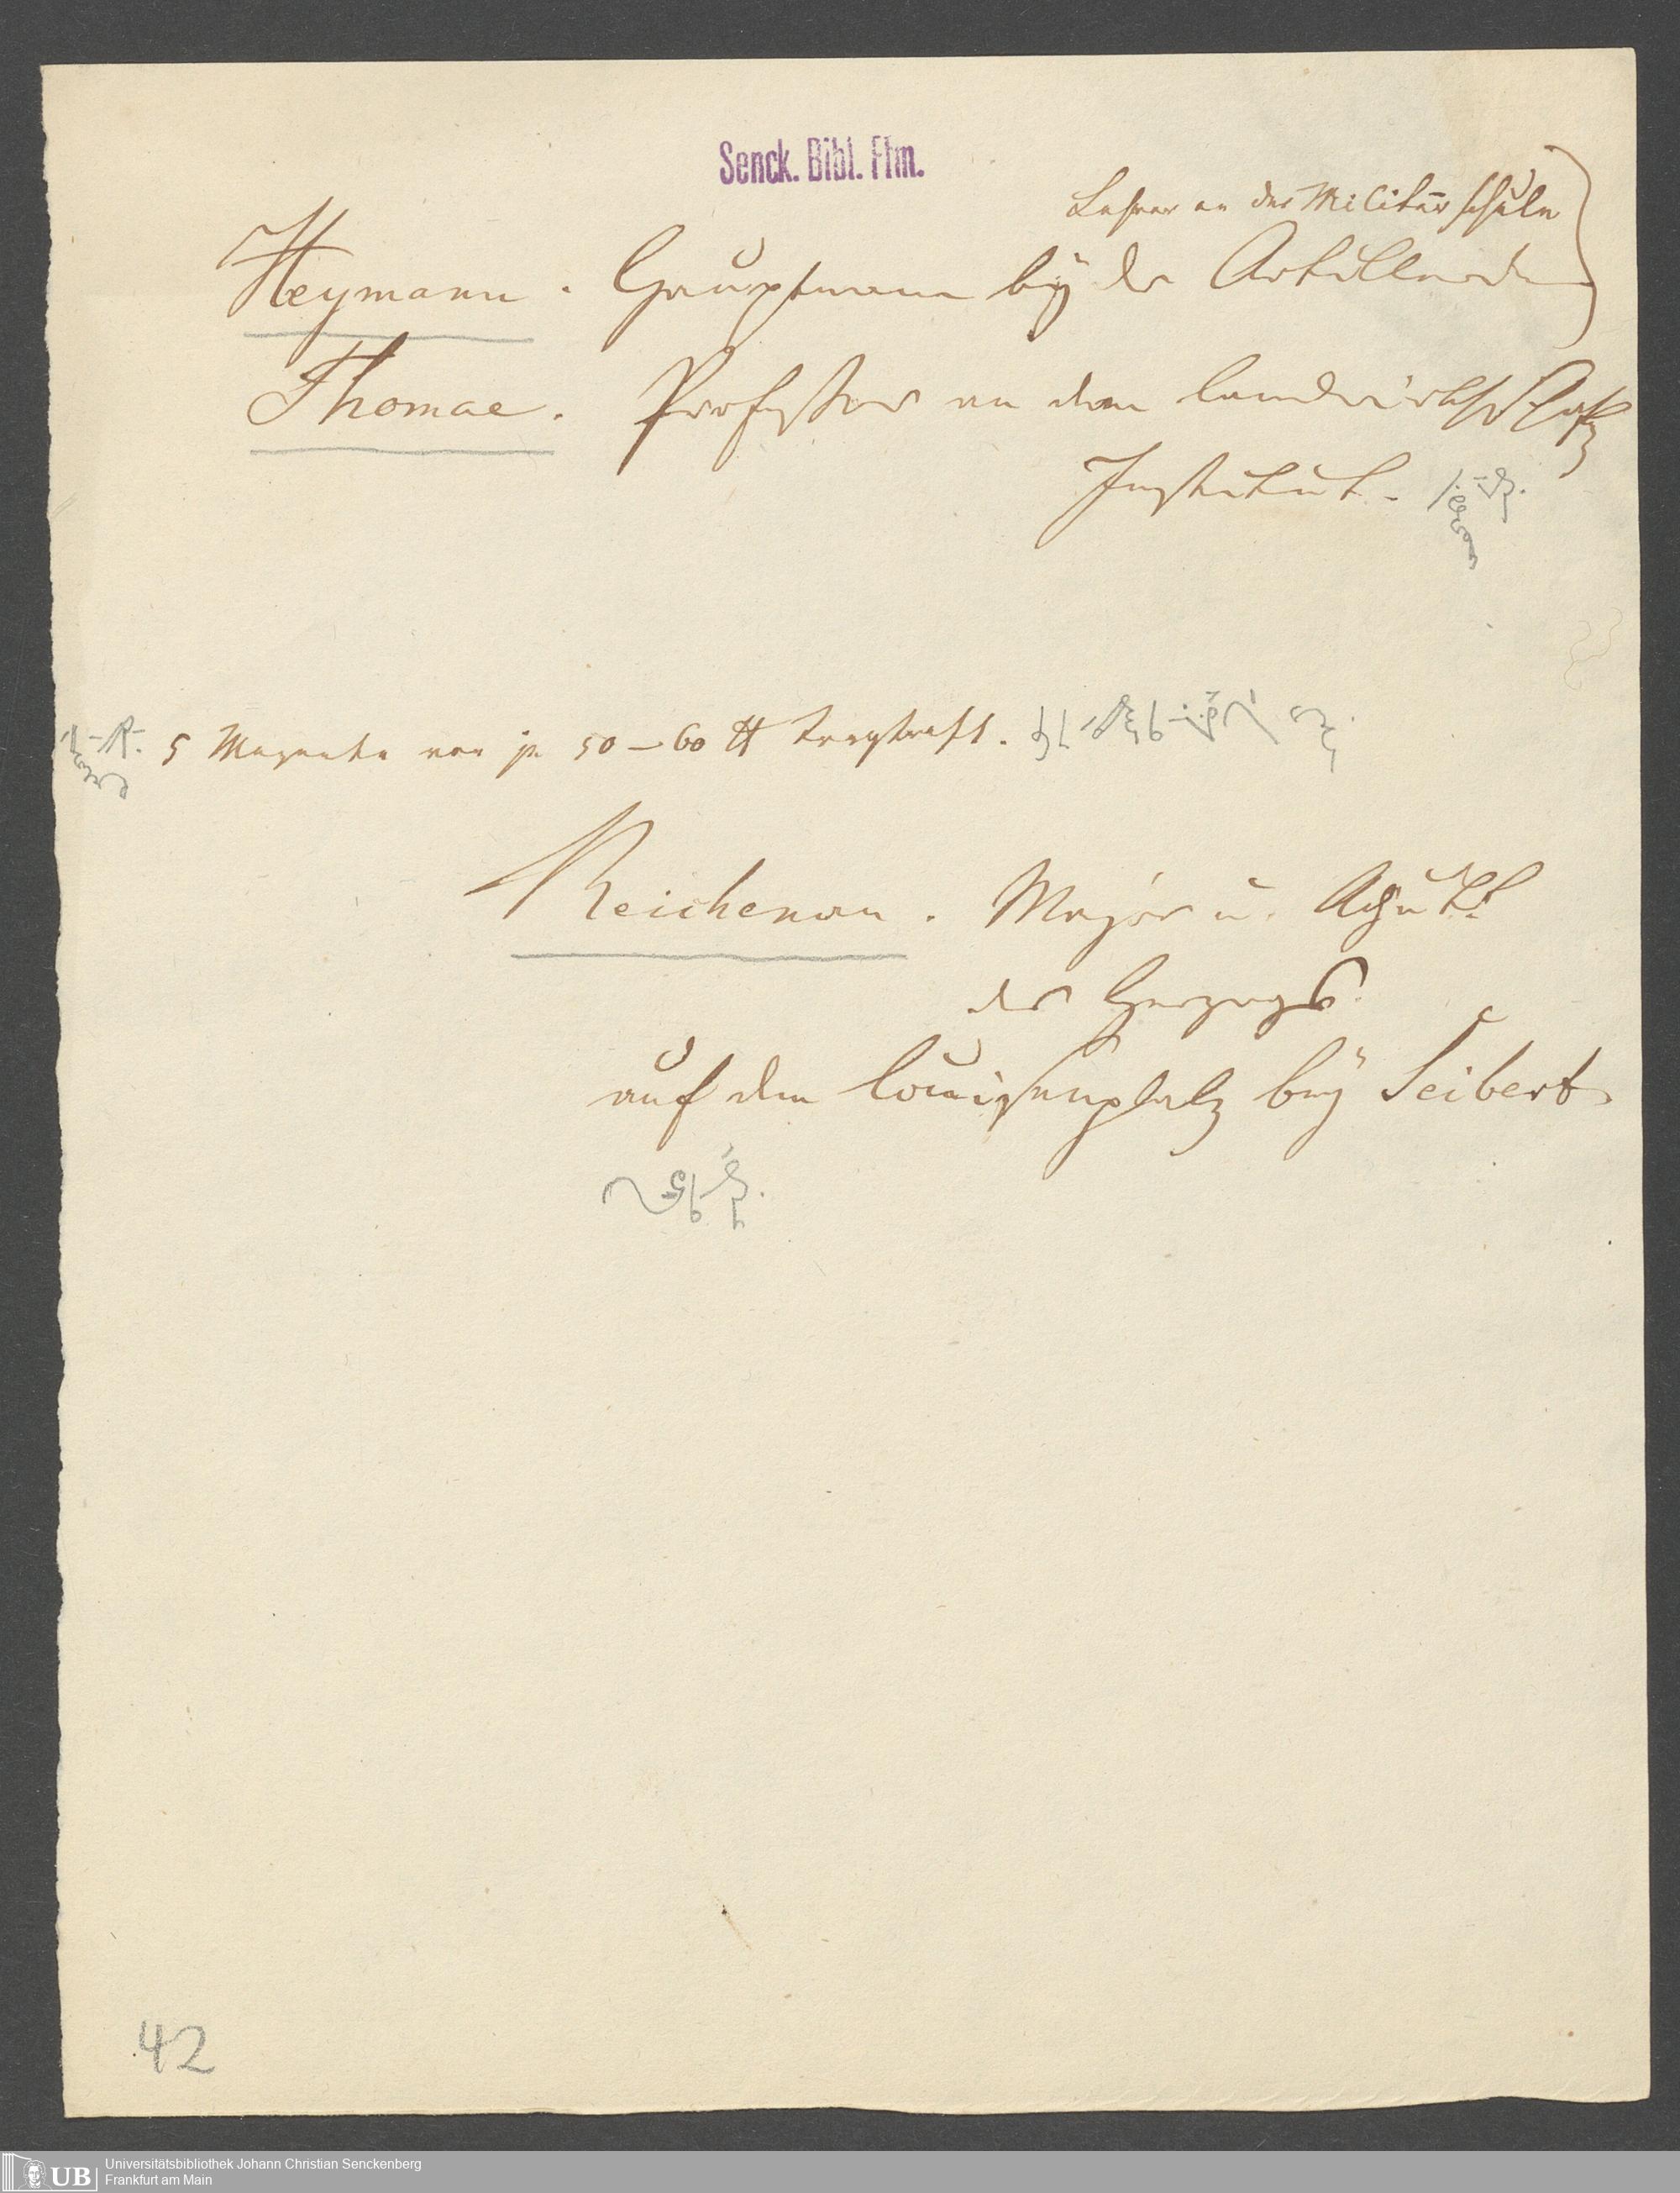 Senck. Bibl. Ffm.
Lehrer an der Militärschule
Heymann. Hauptmann bey der Artillerie
Thomae. Professor an dem landwirthschaftl.
Institut.
5 Magnete von je 50–60 ℔ Tragkraft.
Reichenau. Major u. Adjutt.
des Herzogs
auf dem Louisenplatz bey Seibert
42
UB Universitätsbibliothek Johann Christian Senckenberg
Frankfurt am Main